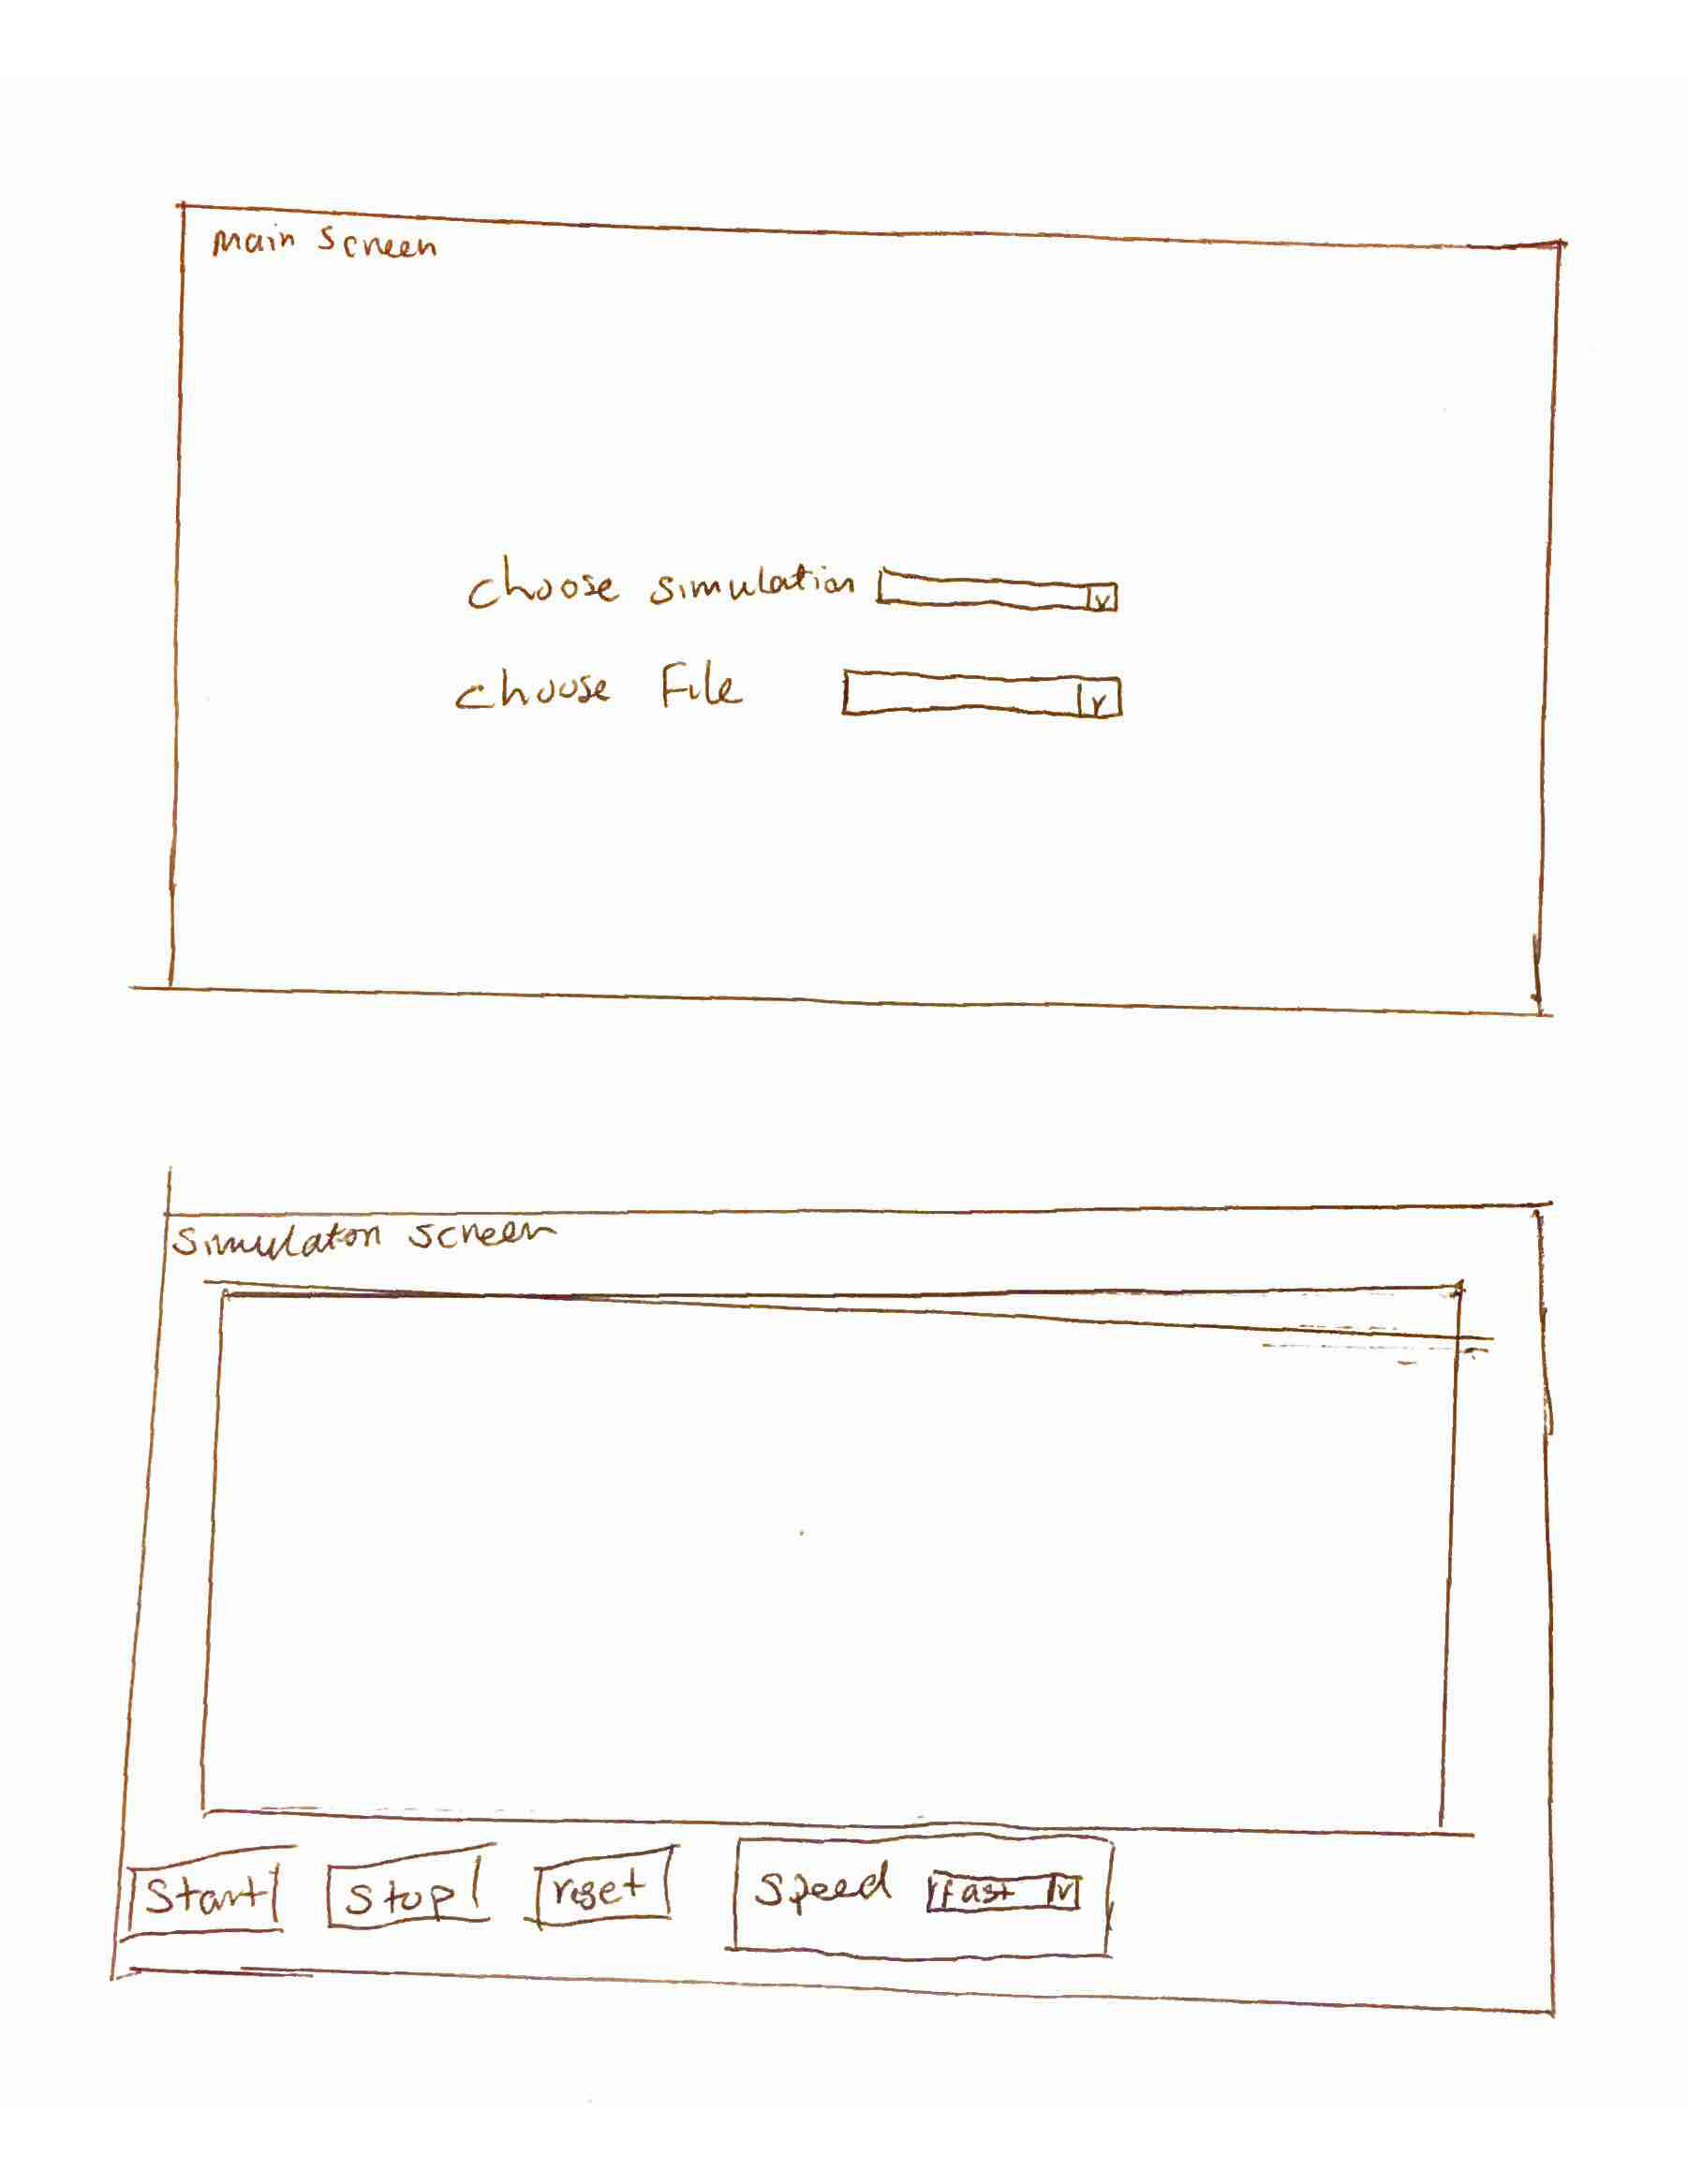 Main Screen
choose simulation
choose File
Simulaton screen
Start
Stop
reset
Speed
Fast